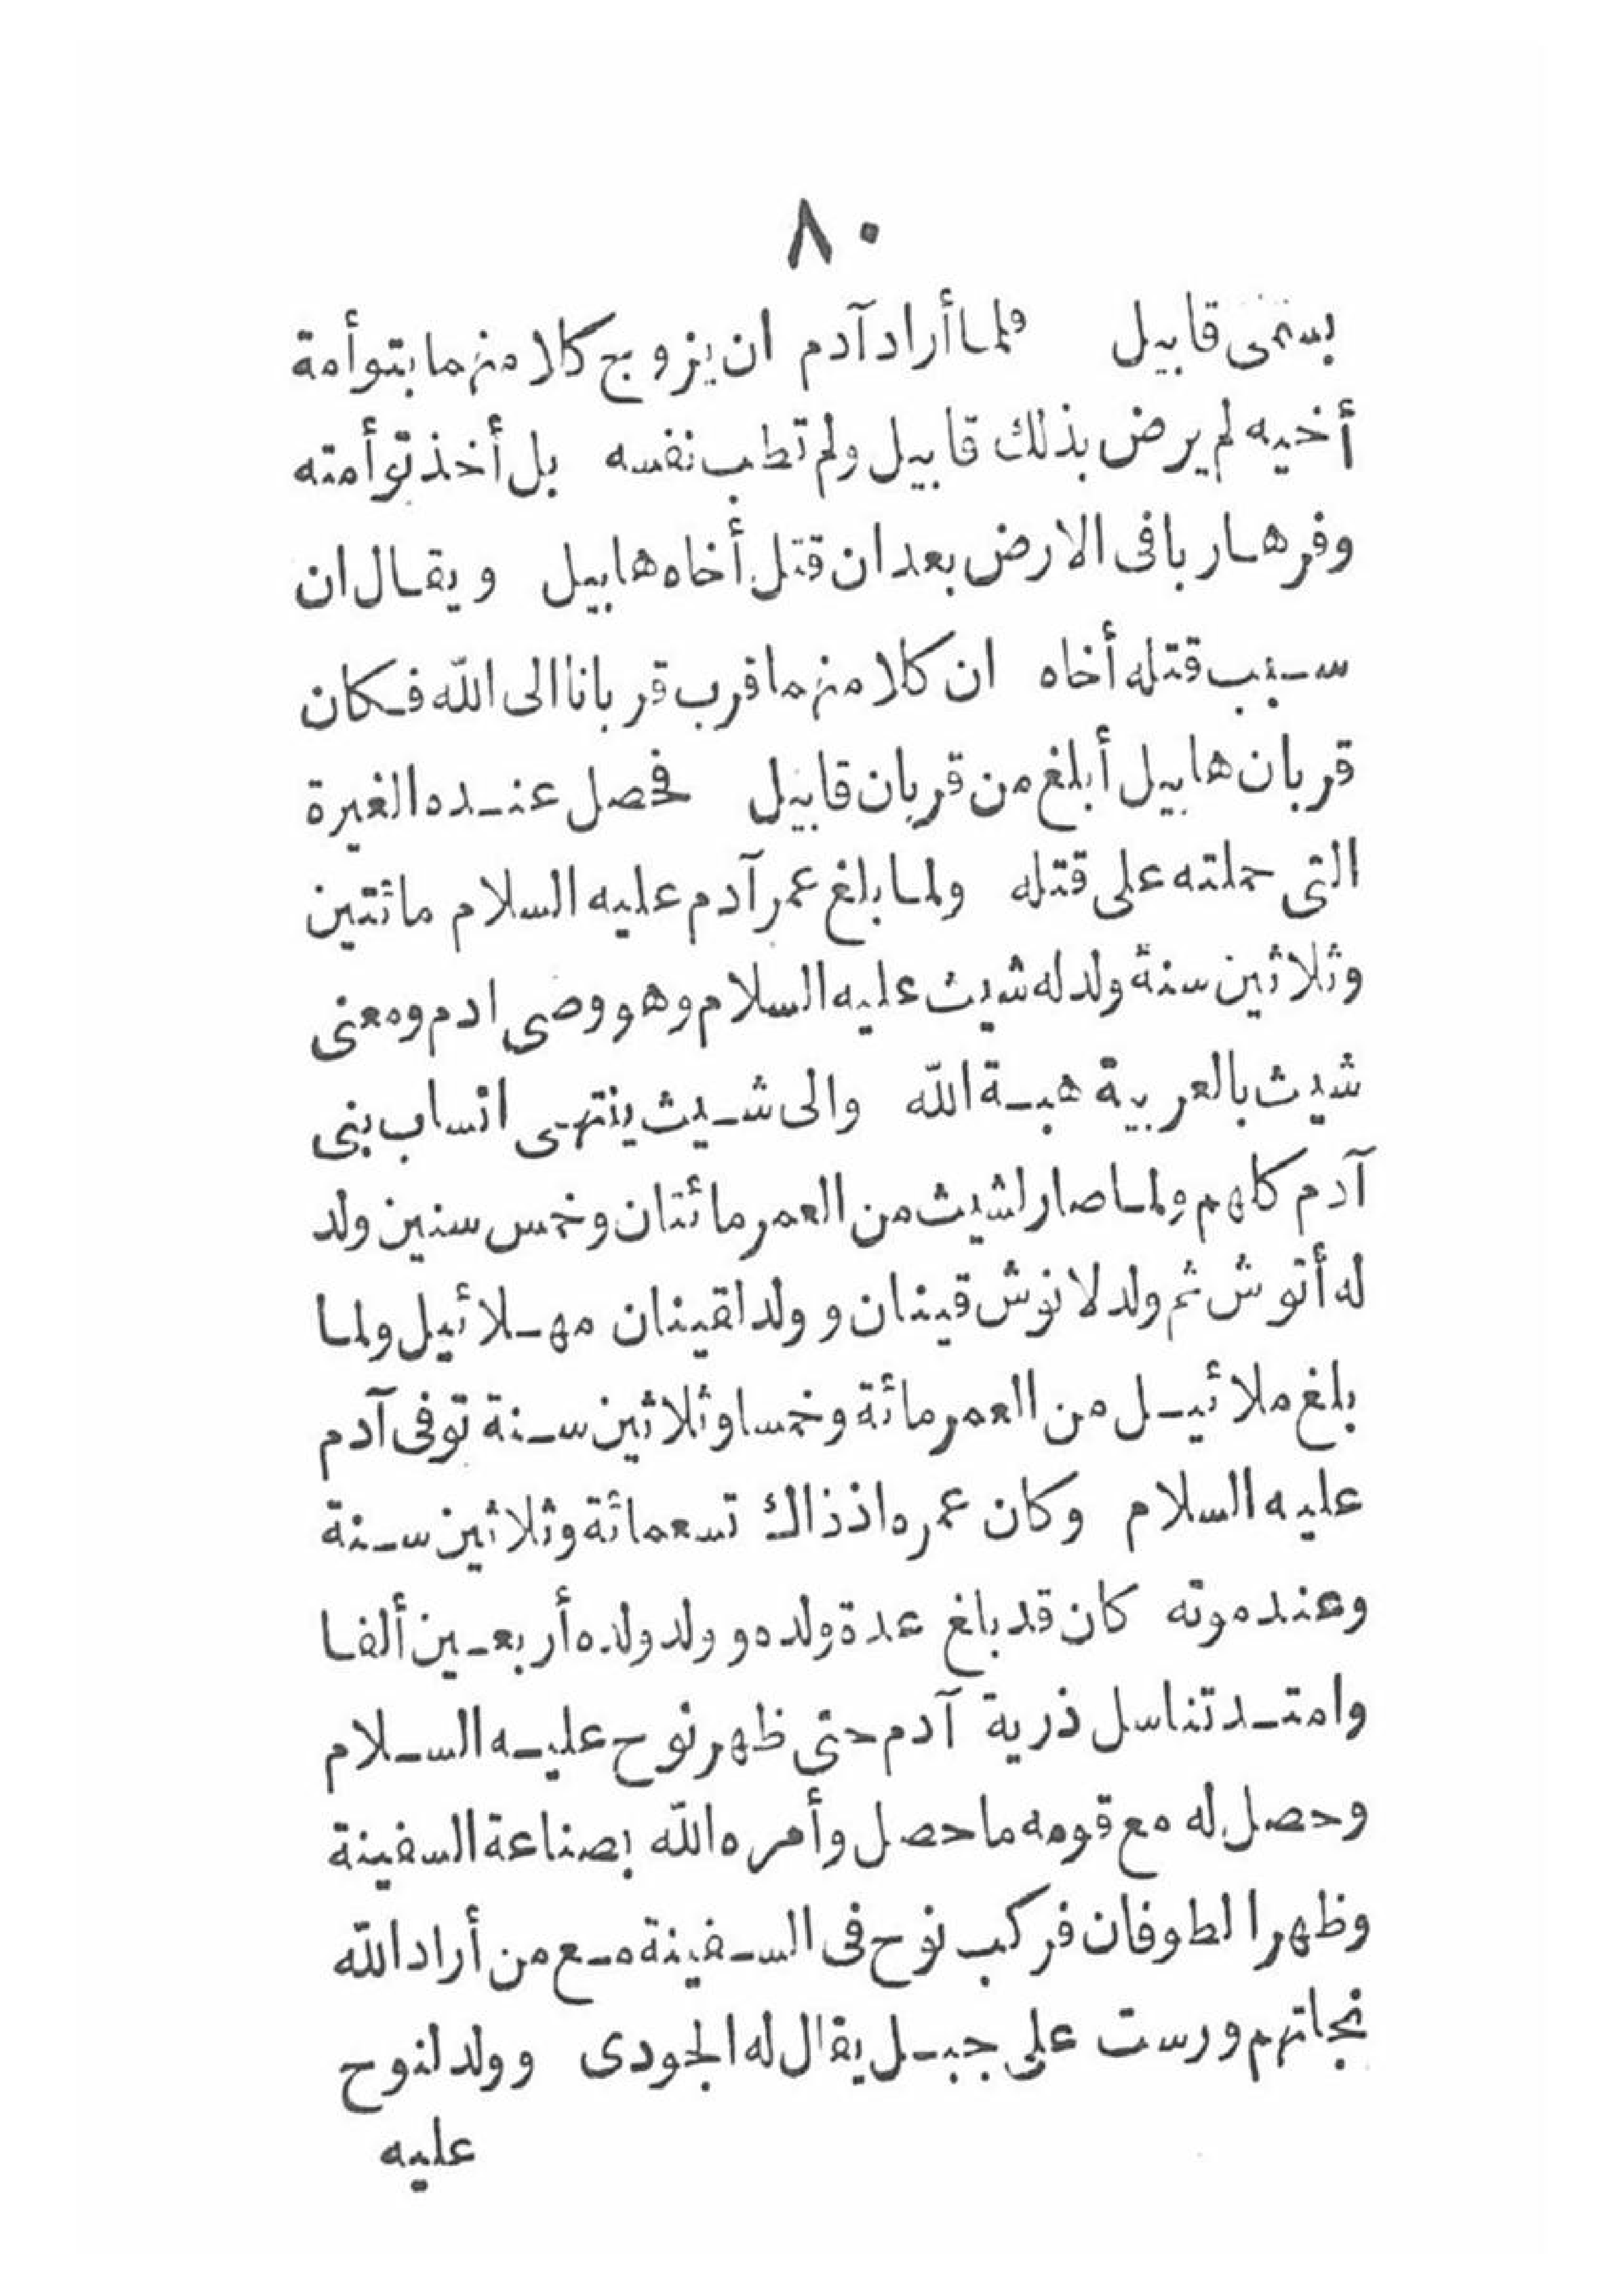 ٨٠
يسمى قابيل فلما أراد آدم ان يزوج كلا منهما بتوأمة
أخيه لم يرض بذلك قابيل ولم تطب نفسه بل أخذ توأمته
وفر هاربا فى الارض بعد ان قتل أخاه هابيل ويقال ان
سبب قتله أخاه ان كلا منهما قرب قربانا الى الله فكان
قربان هابيل أبلغ من قربان قابيل فحصل عنده الغيرة
التى حملته على قتله ولما بلغ عمر آدم عليه السلام مائتين
وثلاثين سنة ولد له شيث عليه السلام وهو وصى ادم ومعنى
شيث بالعربية هبة الله والى شيث ينتهى انساب بنى
آدم كلهم ولما صار لشيث من العمر مائتان وخمس سنين ولد
له أنوش ثم ولد لانوش قينان وولد لقينان مهلائيل ولما
بلغ ملائيل من العمر مائة وخمسا وثلاثين سنة توفى آدم
عليه السلام وكان عمره اذ ذاك تسعمائة وثلاثين سنة
وعند موته كان قد بلغ عدة ولده وولد ولده أربعين ألفا
وامتد تناسل ذرية آدم حتى ظهر نوح عليه السلام
وحصل له مع قومه ما حصل وأمره الله بصناعة السفينة
وظهر الطوفان فركب نوح فى السفينة مع من أراد الله
نجاتهم ورست على جبل يقال له الجودى وولد لنوح
عليه